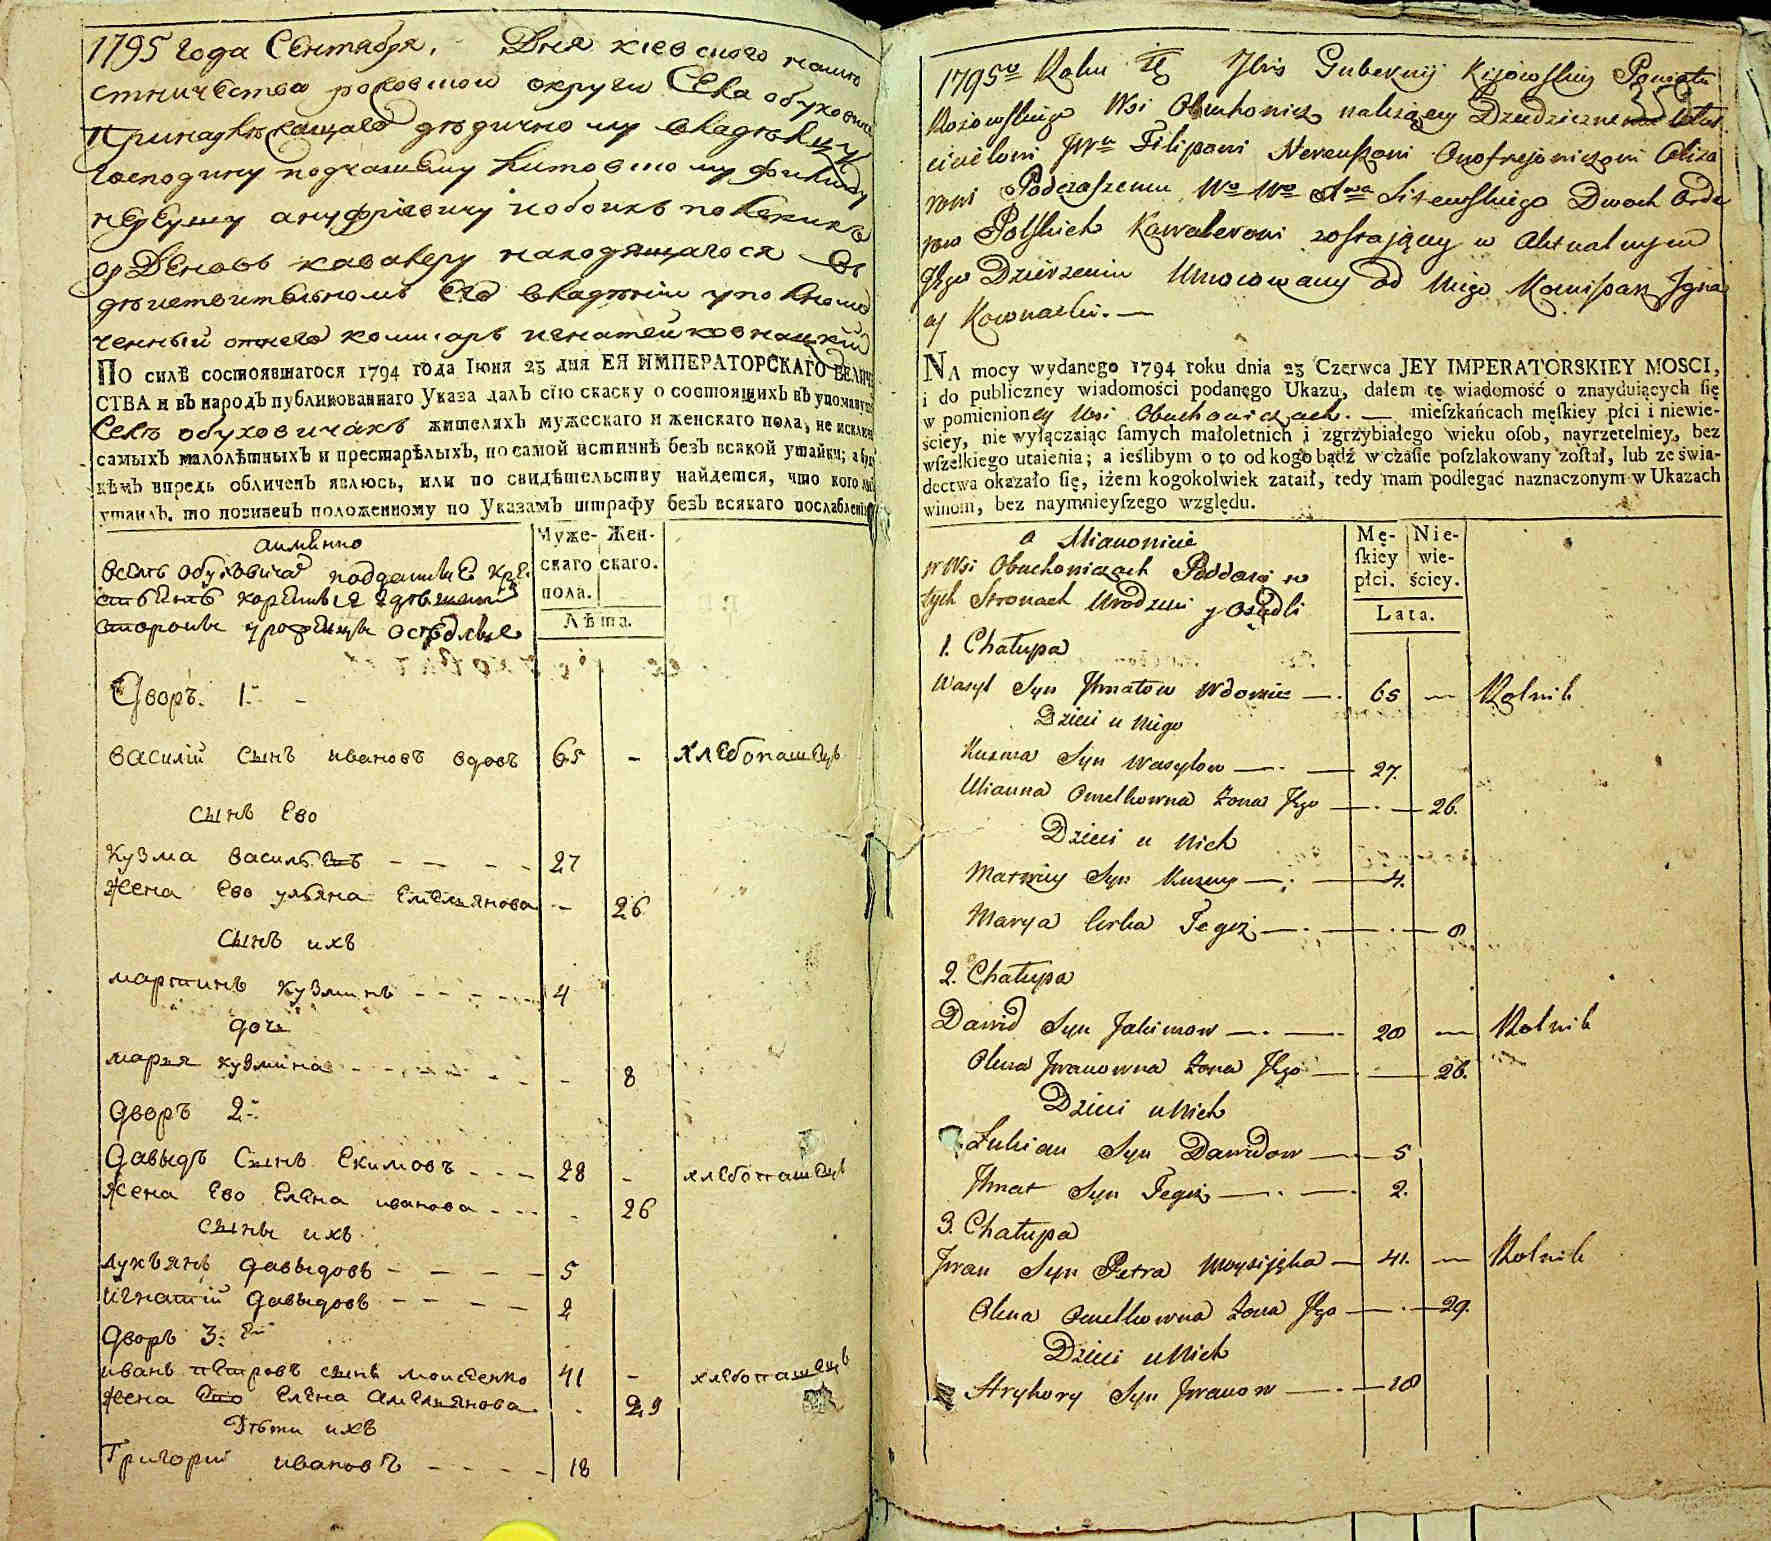 1795 года Сентября. Дня киевского намѣ
стничества роховской округи Села обуховичь
принадлежащаго дѣдичному владѣлцу
господину подчашему литовскому филипу
нерешу ануфріевичу и обоихъ полскихъ
орденовъ кавалеру находящагося въ
дѣйствительномъ его владѣніи уполномо
ченный отнего комисаръ игнатей ковнацкій
ПО силѣ состоявшагося 1794 года Іюня 23 дня ЕЯ ИМПЕРАТОРСКАГО ВЕЛИЧЕ
СТВА и въ народъ публикованнаго Указа далъ сію скаску о состоящихъ въ упомянутомъ
Селѣ обуховичахъ жителяхъ мужескаго и женскаго пола, не исключая
самыхъ малолѣтныхъ и престарѣлыхъ, по самой истиннѣ безъ всякой утайки; а буде
кѣмъ впредь обличенъ явлюсь, или по свидѣтельству найдется, что кого либо
утаилъ, то повиненъ положенному по Указамъ штрафу безъ всякаго послабленія
аименно
Мужескаго пола. Женскаго.
Лѣта.
вселѣ обуховичахъ подданные кре
стьянѣ коренные здѣшней
стороны урожденцы оседлые
Дворъ. 1й
василій сынъ ивановъ вдовъ 65 - хлебопашецъ
сынъ Ево
Кузма васильевъ 27
Жена Ево ульяна Емельянова - 26
Сынъ ихъ
мартинъ кузминъ 4
дочь
марья кузмина - 8
Дворъ 2й
Давыдъ Сынъ Екимовъ 28 - хлебопашецъ
Жена Ево Елена иванова - 26
сыны ихъ
лукьянъ давыдовъ 5
игнатій давыдовъ 2
Дворъ 3й
иванъ петровъ сынъ моисеенко 41 - хлебопашецъ
Жена Ево Елена Амельянова - 29
Дѣти ихъ
Григорій ивановъ 18
35
1795o Roku Gubernij Kijowskiey Powiatu
Wsi Obuchowicz należącey Dziedzicznemu
Filipowi Onofrejowiczowi
rowi Podczaszemu Litewskiego Dwoch Orde
row Polskich Kawalerowi zostającey w Aktualnym
Jego Dzierżeniu Umocowany od Niego Komisarz Igna
cy Kownacki. —
NA mocy wydanego 1794 roku dnia 23 Czerwca JEY IMPERATORSKIEY MOSCI,
i do publiczney wiadomości podanęgo Ukazu, dałem tę wiadomość o znayduiących się
w pomienioney Wsi Obuchowiczach. — mieſzkańcach męſkiey płci i niewie-
ściey, nie wyłączaiąc ſamych małoletnich i zgrzybiałego wieku oſob, nayrzetelniey, bez
wſzelkiego utaienia; a ieślibym o to od kogo bądź w czaſie poſzlakowany zoſtał, lub ze świa-
dectwa okazało ſię, iżem kogokolwiek zataił, tedy mam podlegać naznaczonym w Ukazach
winom, bez naymnieyſzego względu.
a Mianowicie
Mę-ſkiey płci. Nie-wie-ściey.
Lata.
w Wsi Obuchowiczach Poddani w
tych Stronach Urodzeni y Osiedli
1. Chałupa
Wasyl Syn Wdowiec — 65 — Rolnik
Dzieci u Niego
Kuzma Syn Wasylow — 27.
Ulianna Omelkowna Zona Jego — 26.
Dzieci u Nich
Marciey Syn Kuzmy — 4.
Marya Corka Tegoż — 8
2. Chałupa
Dawid Syn Jakimow — 28 — Rolnik
Olena Jwanowna Zona Jego — 26.
Dzieci u Nich
Łukian Syn Dawidow — 5
Ihnat Syn Tegoż — 2.
3. Chałupa
Jwan Syn Petra Moysijęka — 41. — Rolnik
Olena Omelkowna Zona Jego — 29.
Dzieci u Nich
Hryhory Syn Jwanow — 18